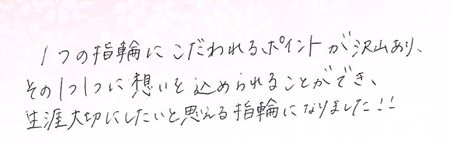 1つの指輪にこだわれるポイントが沢山あり、
その1つ1つに想いを込められることができ、
生涯大切にしたいと思える指輪になりました!!